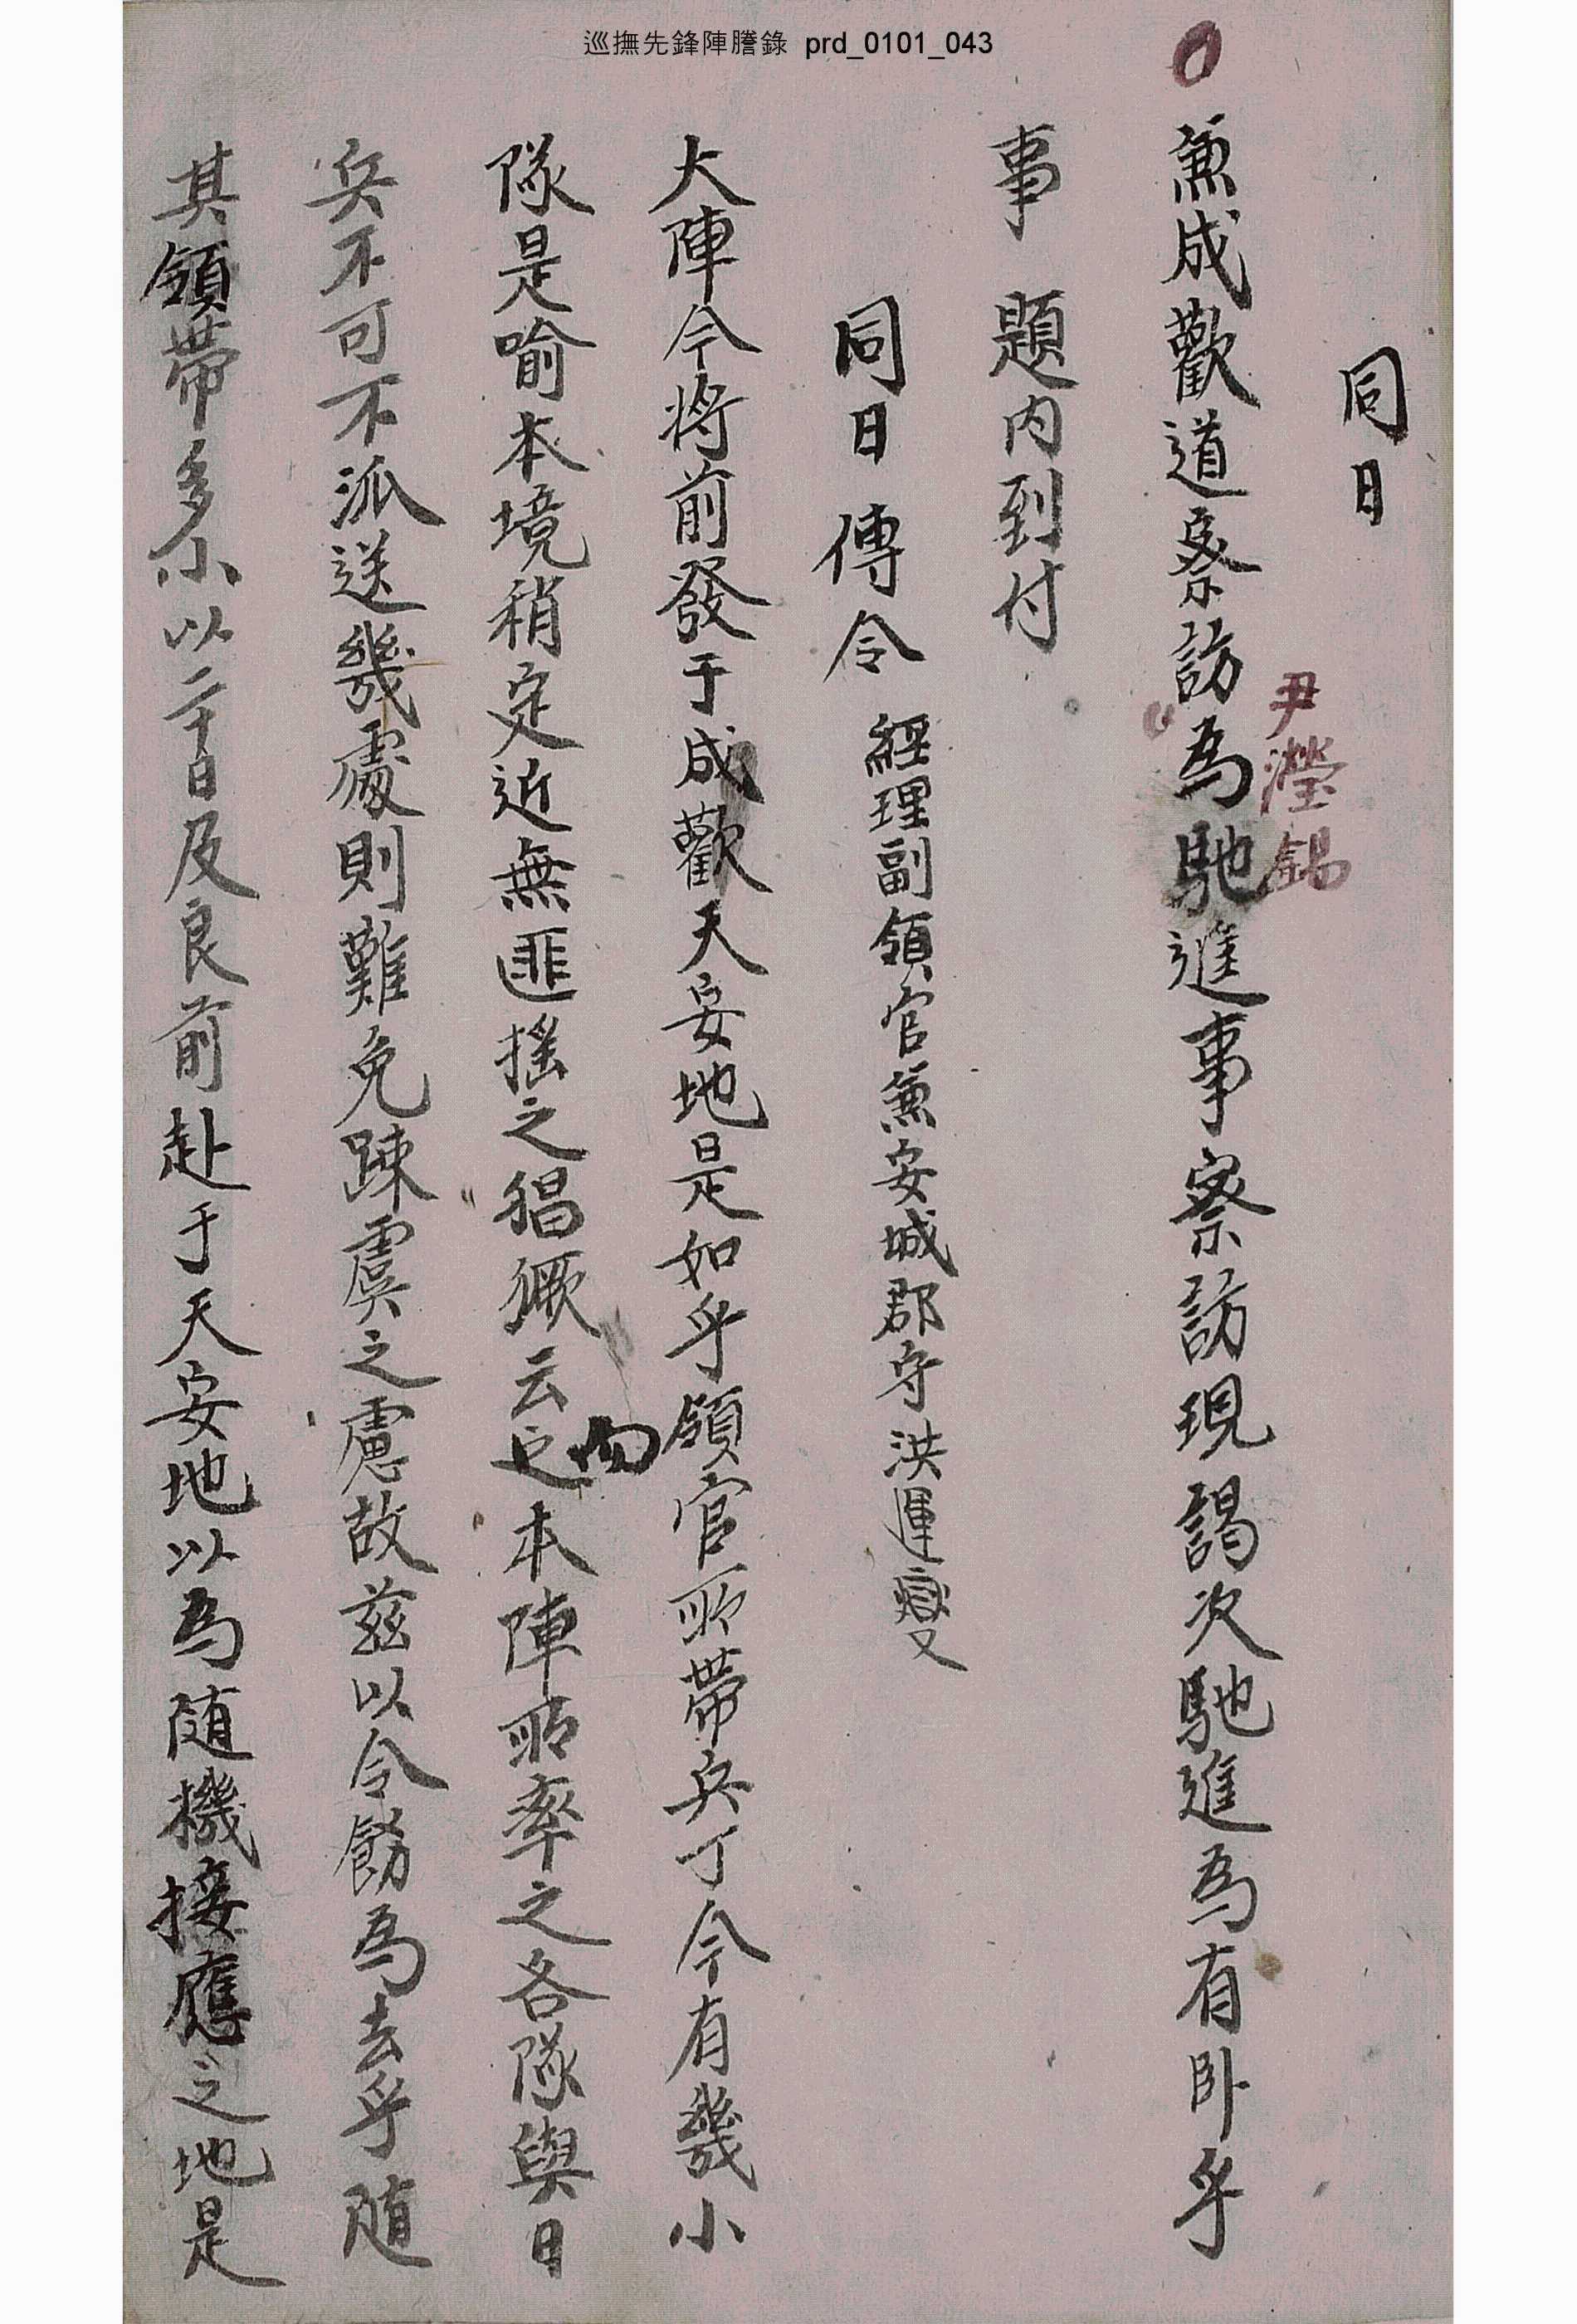 巡撫先鋒陣謄錄 prd_0101_043
同日
兼成歡道察訪為馳進事察訪現謁次馳進為有卧乎
尹瀅錫
事 題内到付
同日 傳令 經理副領官兼安城郡守洪運燮
大陣今將前發于成歡天安地是如乎領官所帶兵丁今有幾小
隊是喻本境稍定近無匪搖之猖獗云已向本陣所率之各隊與日
兵不可不派送幾處則難免踈虞之慮故玆以令飭為去乎随
其領帶多小以二十日及良前赴于天安地以為随機接應之地是